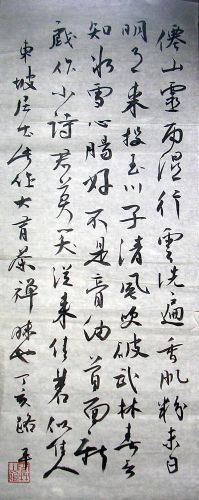 僊山靈雨濕行雲洗遍香肌粉未勻
明月來投玉川子清風吹破武林春要
知冰雪心腸好不是膏油首面新
戲作小詩君莫笑從來佳茗似佳人
東坡居士此作大有茶禪味也丁亥路